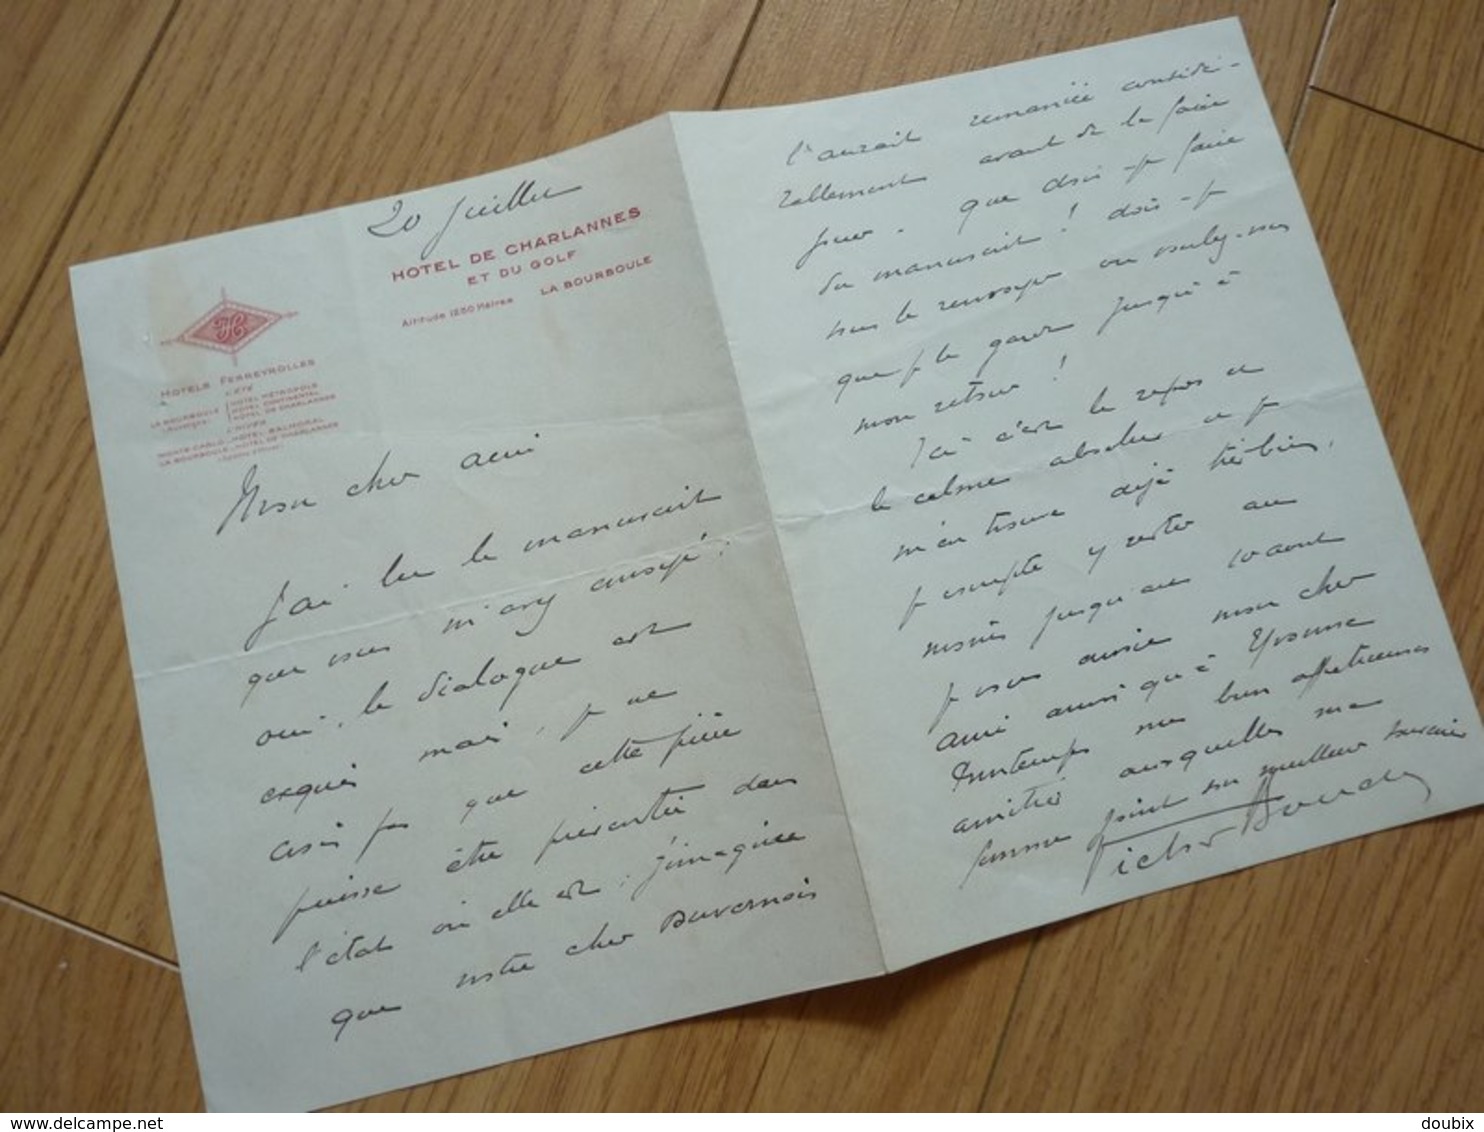 20 juillet
HOTEL DE CHARLANNES
ET DU GOLF
Altitude 1250 Mètres LA BOURBOULE
HOTELS FERREYROLLES
L'ÉTÉ
LA BOURBOULE
(Auvergne)
HOTEL METROPOLE
HOTEL CONTINENTAL
HOTEL DE CHARLANNES
L'HIVER
MONTE-CARLO - HOTEL BALMORAL
LA BOURBOULE - HOTEL DE CHARLANNES
Mon cher ami
J'ai lu le manuscrit
que vous m'avez envoyé :
oui, le dialogue est
exquis mais, je ne
crois pas que cette pièce
puisse être présentée dans
l'état où elle est ; j'imagine
que notre cher Duvernois
l'aurait remaniée considé-
rablement avant de la faire
jouer. que dois-je faire
du manuscrit ! dois-je
vous le renvoyer ou voulez-vous
que je le garde jusqu'à
mon retour !
Ici c'est le repos et
le calme absolu et je
m'en trouve déjà très bien,
je compte y rester au
moins jusqu'au 10 aout
je vous envoie mon cher
ami ainsi qu'à Yvonne
Printemps mes bien affectueuses
amitiés auxquelles ma
femme joint son meilleur souvenir
Victor Boucher
delcampe.net
doubix